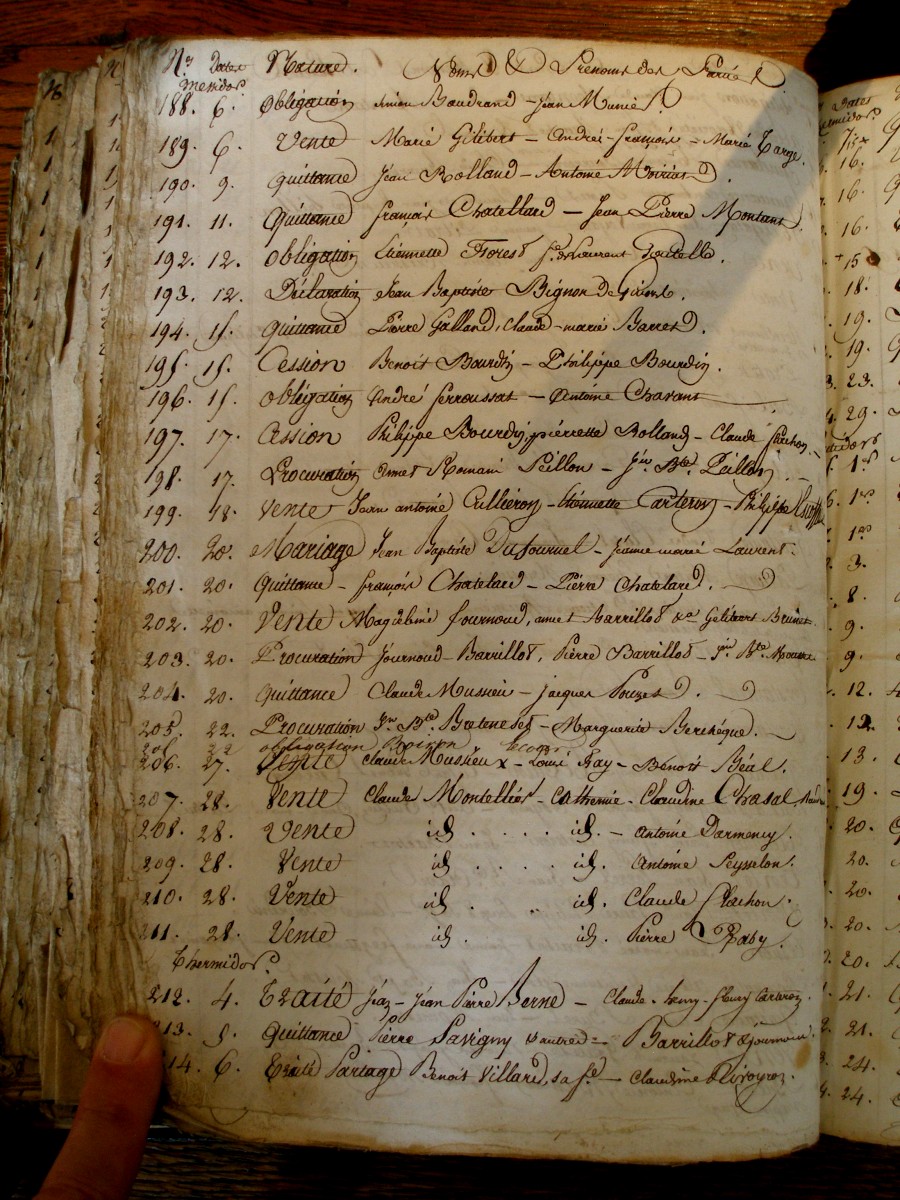 Nos Dates Nature. Noms & Prenoms des Parties
Messidor
188. 6. Obligation Baudrand - Jean Munier
189. 6. Vente Marie Gilibert - André - françois - Marie Targe.
190. 9. quittance Jean Rolland - Antoine
191. 11. Quittance françois Chatellard - Jean Pierre Montant.
192. 12. obligation Etiennette Forest fe. de Laurent
193. 12. Déclaration Jean Baptiste Bignon de
194. 15. quittance Pierre Galland, Claude-marie Barret.
195. 15. Cession Benoit Bourdin - Philippe Bourdin.
196. 15. obligation André ferroussat - Antoine Chavant
197. 17. Cession Philippe Bourdin, pierrette Bolland - Claude flachon
198. 17. Procuration amet Romani Peillon - Jn. Bte. Peillon
199. 18. Vente Jean antoine Cullieron - Etiennette Carteron - Philippe
200. 20. Mariage Jean Baptiste Dufournel - Jeanne marie Laurent.
201. 20. quittance - françois Chatelard - Pierre Chatelard.
202. 20. Vente Magdelaine fournoud, amet Barrillot & a Gelibert Brunet
203. 20. Procuration Journoud - Barrillot, Pierre Barrillot - Jn. Bte.
204. 20. quittance Claude Mussieu - jacques Pouzet.
205. 22. Procuration Jn. Bte. - Marguerite Berthégue.
206 22 obligation
206. 27. Vente Claude Mussieux - Louis Fay - Benoit Réal.
207. 28. Vente Claude Montellier - Catherine - Claudine Chasal
208. 28. Vente id. . . . . id. - Antoine Darmency.
209. 28. Vente id. . . . . id. Antoine Peysselon.
210. 28. Vente id. . .. id. Claude flachon.
211. 28. Vente id. . id. Pierre Raby.
Thermidor.
212. 4. Traité Jean - Jean Pierre Berne - Claude - henry - fleury Carteron.
13. 5. quittance Pierre Savigny & autres = Barrillot & Journoud.
14. 6. Traité Partage Benoit Villard, sa fe. - Claudine
Dates
16.
16.
16.
15
18.
19.
19.
23.
29.
1er
1er
1er
3.
8.
9.
9.
12.
12.
13.
19.
20.
20.
20.
20.
20.
21.
21.
24.
24.